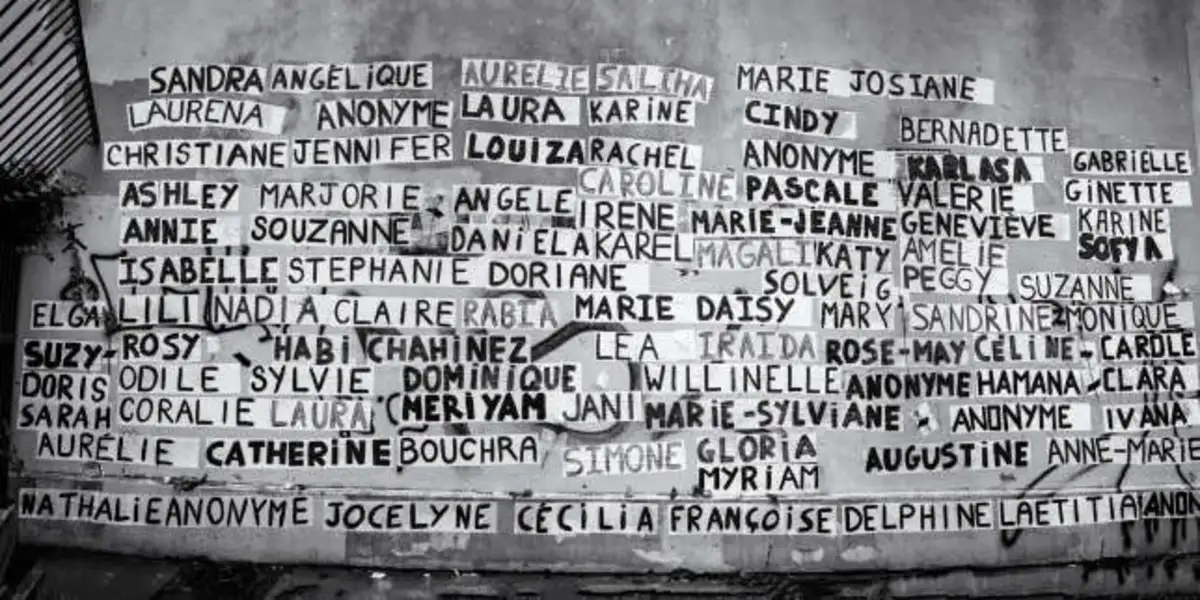 SANDRA ANGÈLIQUE AURELIE SALIHA MARIE JOSIANE
LAURENA ANONYME LAURA KARINE CINDY BERNADETTE
CHRISTIANE JENNIFER LOUIZA RACHEL ANONYME KARLASA GABRIELLE
ASHLEY MARJORIE ANGELE CAROLINE PASCALE VALERIE GINETTE
ANNIE SOUZANNE IRENE MARIE-JEANNE GENEVIÈVE KARINE
DANIELA KAREL MAGALI KATY AMELIE SOFYA
ISABELLE STEPHANIE DORIANE SOLVEIG PEGGY SUZANNE
ELGA LILI NADIA CLAIRE RABIA MARIE DAISY MARY SANDRINE MONIQUE
SUZY ROSY HABI CHAHINEZ LEA IRAIDA ROSE-MAY CÉLINE CAROLE
DORIS ODILE SYLVIE DOMINIQUE WILLINELLE ANONYME HAMANA CLARA
SARAH CORALIE LAURA MERIYAM JANI MARIE-SYLVIANE ANONYME IVANA
AURÉLIE CATHERINE BOUCHRA SIMONE GLORIA AUGUSTINE ANNE-MARIE
MYRIAM
NATHALIE ANONYME JOCELYNE CÉCILIA FRANÇOISE DELPHINE LAETITIA ANON